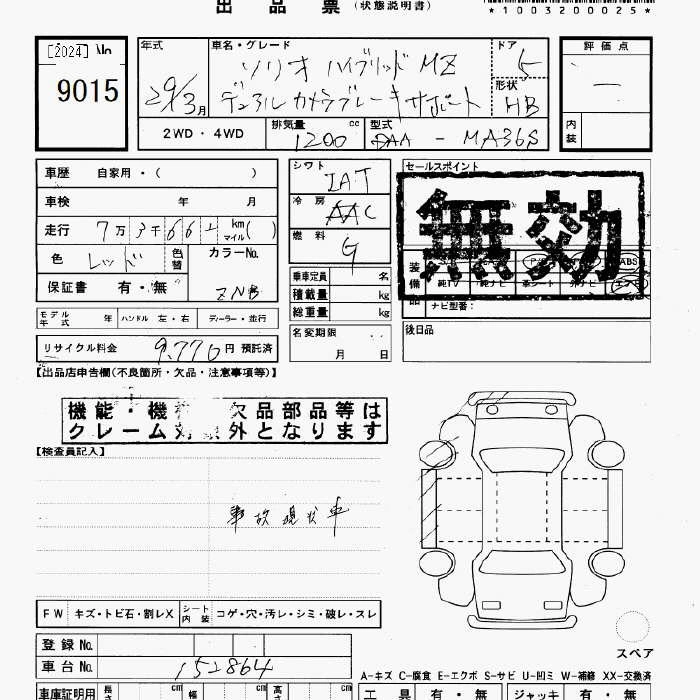 出品票 (状態説明書)
*1003200025*
[2024] No
9015
年式
29/3月
車名・グレード
ソリオ ハイブリッド MZ
デュアルカメラブレーキサポート
ドア
5
形状
HB
評価点
―
内装
2WD・4WD
排気量 cc
1200
型式
DAA - MA36S
車歴 自家用・( )
車検 年 月
走行 7万3千66 km マイル( )
色 レッド
色替
カラーNo.
ZNB
保証書 有・無
シフト
IAT
冷房
AAC
燃料
G
乗車定員 名
積載量 kg
総重量 kg
セールスポイント
無効
装備品
ABS
純TV 純ナビ 革シート 外ナビ
ナビ型番:
モデル年式 年 ハンドル 左・右 ディーラー・並行
名変期限
月 日
後日品
リサイクル料金 9,770円 預託済
【出品店申告欄(不良箇所・欠品・注意事項等)】
機能・機 欠品部品等は
クレーム対 外となります
【検査員記入】
事故現状車
FW キズ・トビ石・割レX シート内装 コゲ・穴・汚レ・シミ・破レ・スレ
登録No.
車台No. 152864
スペア
A-キズ C-腐食 E-エクボ S-サビ U-凹ミ W-補修 XX-交換済
車庫証明用 長さ cm 幅 cm 高さ cm
工具 有・無 ジャッキ 有・無